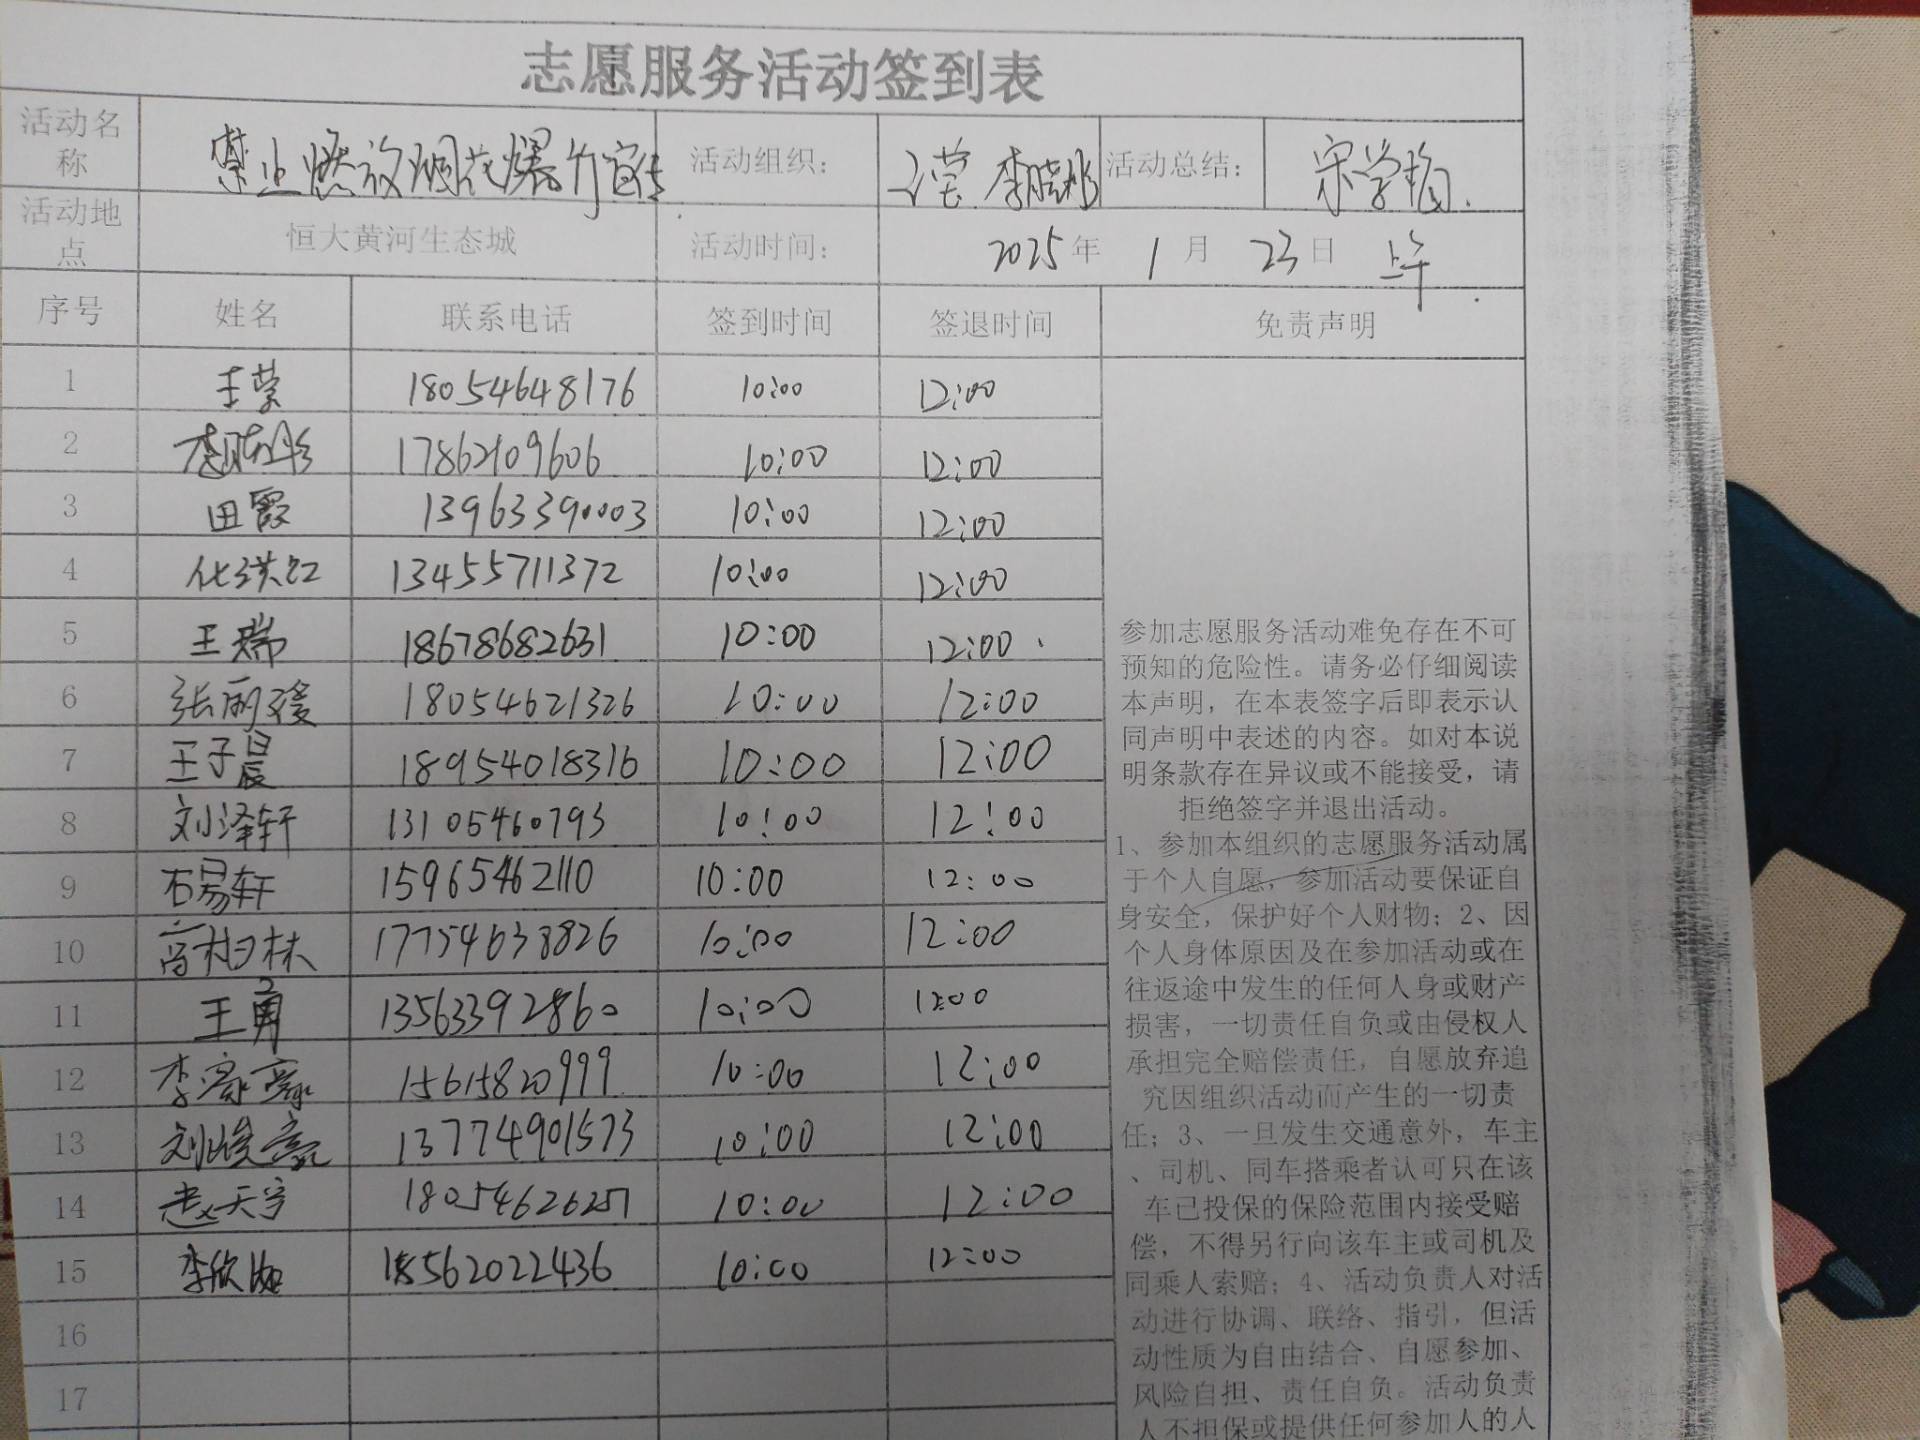 志愿服务活动签到表
活动名称 禁止燃放烟花爆竹宣传 活动组织: 李晓彤 活动总结: 宋学梅.
活动地点 恒大黄河生态城 活动时间: 2025年 1月 23日 上午
序号 姓名 联系电话 签到时间 签退时间 免责声明
1 王荣 18054648176 10:00 12:00
2 李晓彤 17862109606 10:00 12:00
3 田霞 13963390003 10:00 12:00
4 化洪红 13455711372 10:00 12:00
5 王瑞 18678682631 10:00 12:00
6 张雨瑗 18054621326 10:00 12:00
7 王子晨 18954018316 10:00 12:00
8 刘泽轩 13105460793 10:00 12:00
9 石易轩 15965462110 10:00 12:00
10 高相林 17754638826 10:00 12:00
11 王勇 13563392860 10:00 12:00
12 李家豪 15615820999 10:00 12:00
13 刘峻豪 13774901573 10:00 12:00
14 赵天宇 18054626257 10:00 12:00
15 李欣 18562022436 10:00 12:00
16
17
参加志愿服务活动难免存在不可
预知的危险性。请务必仔细阅读
本声明，在本表签字后即表示认
同声明中表述的内容。如对本说
明条款存在异议或不能接受，请
拒绝签字并退出活动。
1、参加本组织的志愿服务活动属
于个人自愿，参加活动要保证自
身安全，保护好个人财物；2、因
个人身体原因及在参加活动或在
往返途中发生的任何人身或财产
损害，一切责任自负或由侵权人
承担完全赔偿责任，自愿放弃追
究因组织活动而产生的一切责
任；3、一旦发生交通意外，车主
、司机、同车搭乘者认可只在该
车已投保的保险范围内接受赔
偿，不得另行向该车主或司机及
同乘人索赔；4、活动负责人对活
动进行协调、联络、指引，但活
动性质为自由结合、自愿参加、
风险自担、责任自负。活动负责
人不担保或提供任何参加人的人